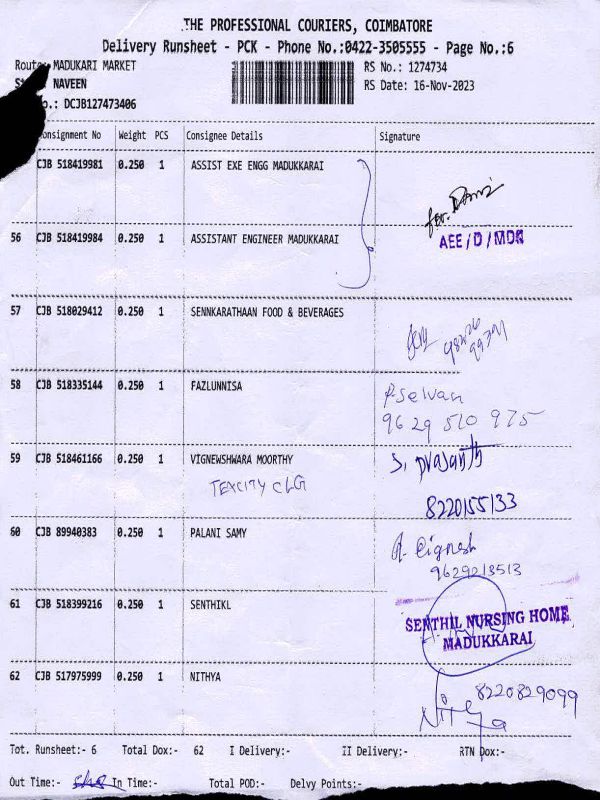 THE PROFESSIONAL COURIERS, COIMBATORE
Delivery Runsheet - PCK - Phone No.:0422-3505555 - Page No.:6
Route: MADUKARI MARKET
RS No.: 1274734
NAVEEN
RS Date: 16-Nov-2023
o.: DCJB127473406
onsignment No Weight PCS Consignee Details Signature
CJB 518419981 0.250 1 ASSIST EXE ENGG MADUKKARAI
for.
56 CJB 518419984 0.250 1 ASSISTANT ENGINEER MADUKKARAI AEE/D/MDR
57 CJB 518029412 0.250 1 SENNKARATHAAN FOOD & BEVERAGES
58 CJB 518335144 0.250 1 FAZLUNNISA P. Selvan
9629 510 975
59 CJB 518461166 0.250 1 VIGNEWSHWARA MOORTHY S. Prasanth
TEXCITY CLG
8220155133
60 CJB 89940383 0.250 1 PALANI SAMY
9629213513
61 CJB 518399216 0.250 1 SENTHIKL
SENTHIL NURSING HOME
MADUKKARAI
62 CJB 517975999 0.250 1 NITHYA
8220829099
Nithya
Tot. Runsheet:- 6 Total Dox:- 62 I Delivery:- II Delivery:- RTN Dox:-
Out Time:- In Time:- Total POD:- Delvy Points:-